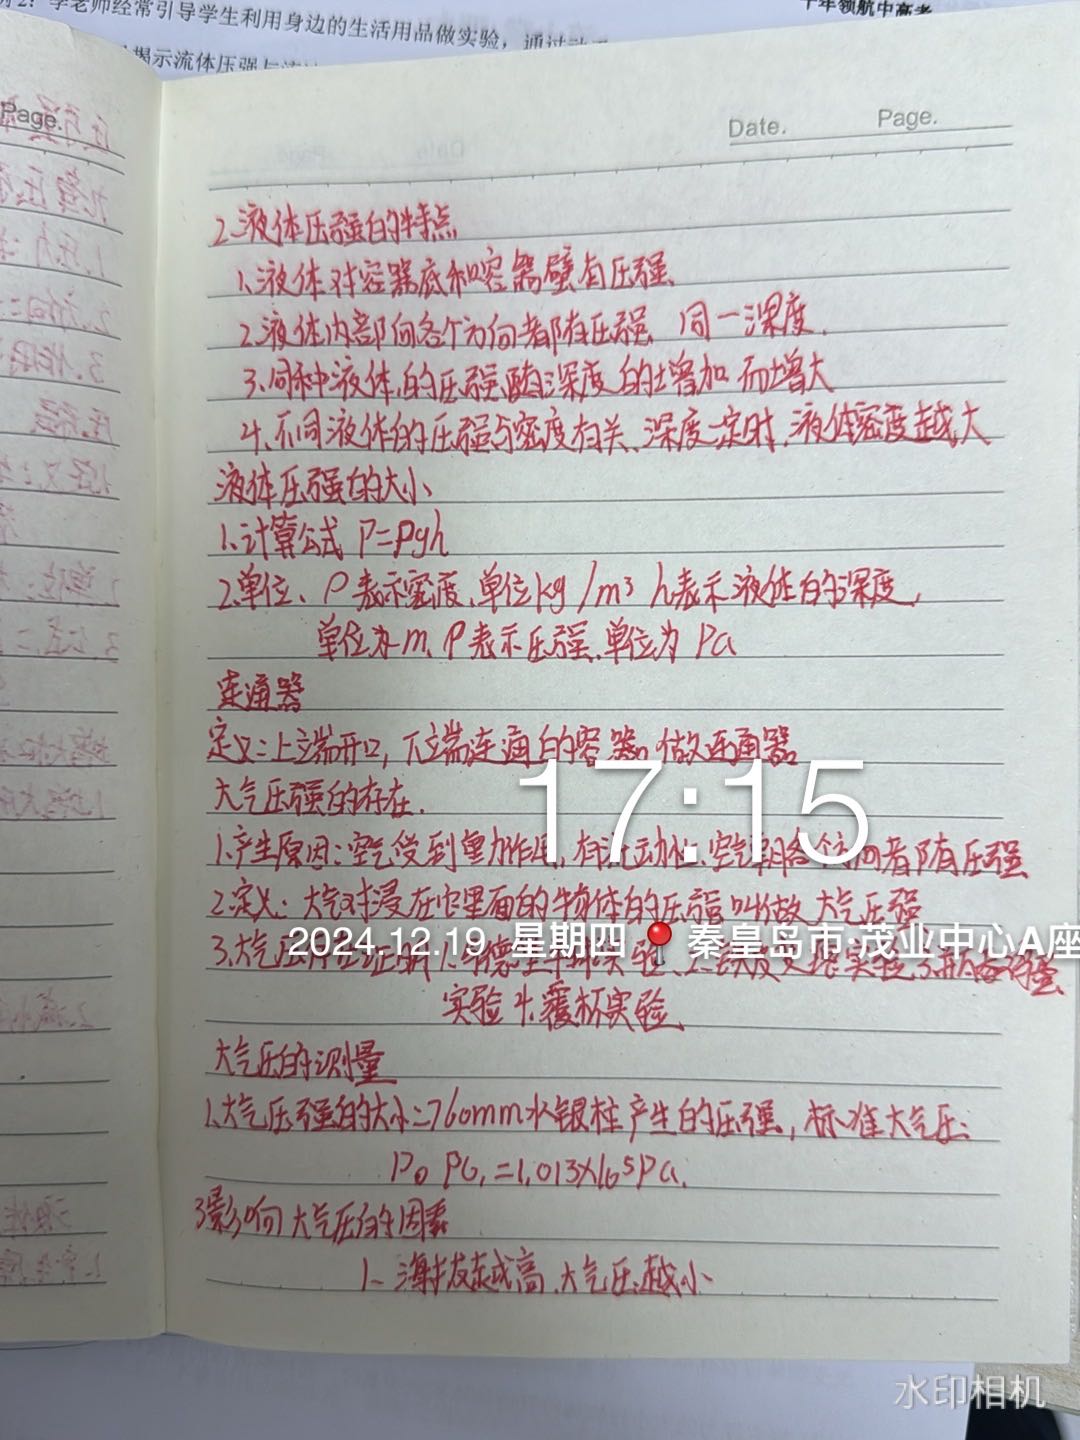 李老师经常引导学生利用身边的生活用品做实验,通过
揭示流体压强与流
十年领航中高考
Page.
Date. Page.
2.液体压强的特点
1.液体对容器底和容器壁有压强
2.液体内部向各个方向都有压强 同一深度.
3.同种液体的压强随深度的增加而增大
4.不同液体的压强与密度有关、深度一定时、液体密度越大
液体压强的大小
1.计算公式 P=ρgh
2.单位、ρ表示密度、单位kg/m³ h表示液体的深度,
单位为m、P表示压强、单位为Pa
连通器
定义:上端开口,下端连通的容器叫做连通器
大气压强的存在.
1.产生原因:空气受到重力作用,有流动性、空气朝各个方向都有压强
2.定义:大气对浸在它里面的物体的压强叫做大气压强
3.大气压 证明 1.马德堡半球实验、2. 实验 3.
实验 4.覆杯实验
大气压的测量
1.大气压强的大小=760mm水银柱产生的压强,标准大气压:
P₀ =1.013×10⁵Pa.
3影响大气压的因素
1、海拔越高、大气压越小
17:15
2024.12.19 星期四 📍秦皇岛市·茂业中心A座
水印相机